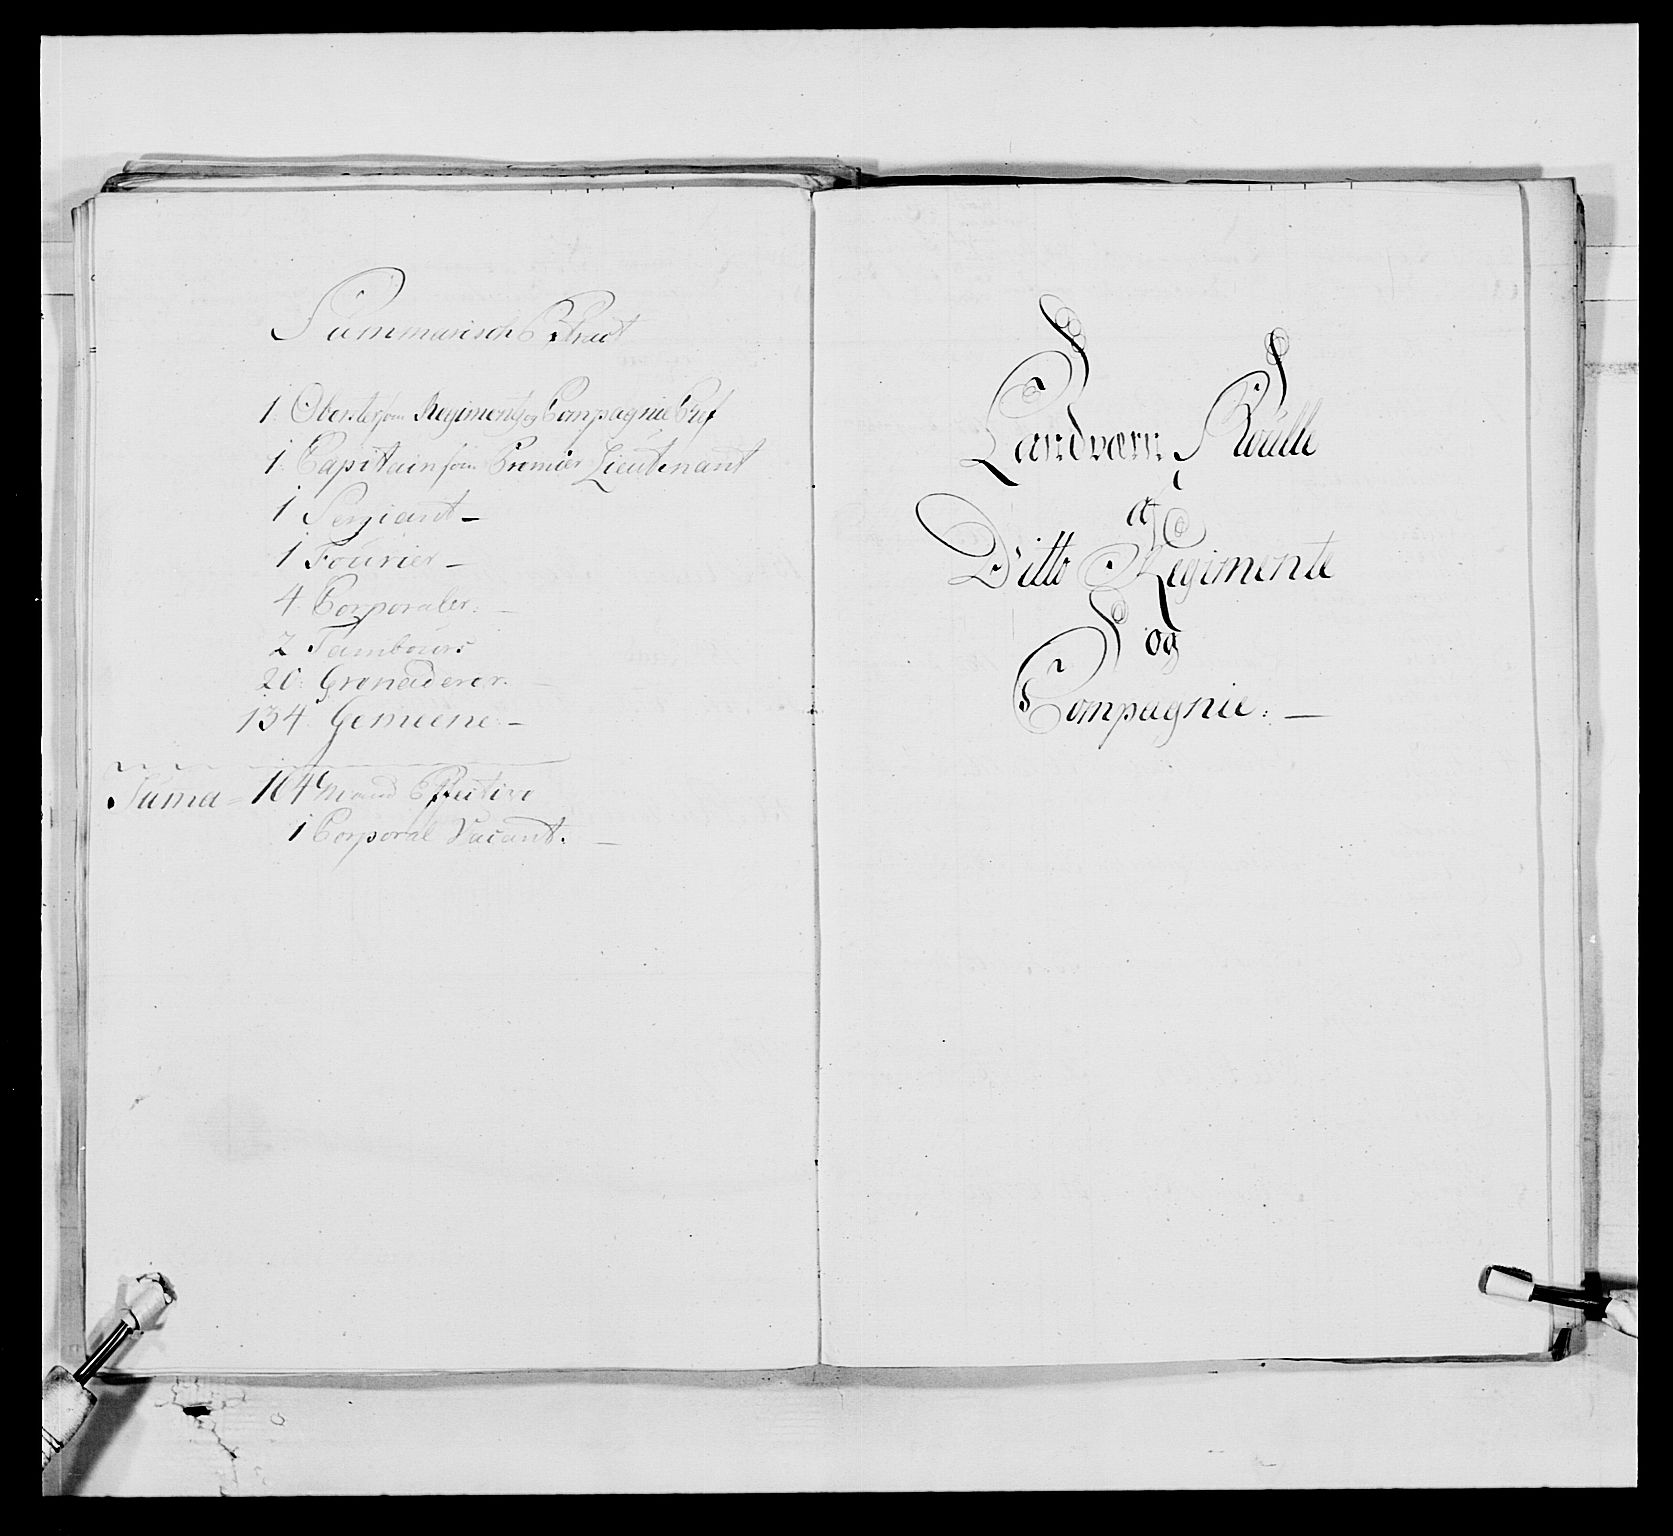 Summarisch Extract
1 Oberster som Regiments og Compagnie Chef
1. Capitain som Premier Lieutenant
1 Sergiant -
1 Fourier -
4. Corporaler. -
2 Tambours
20. Grenaderer. -
134. Gemeene. -
Suma = 164 Mand Effective
1 Corporal Vacant. -
Landværn Roulle
af
Ditto Regimente
og
Compagnie. -